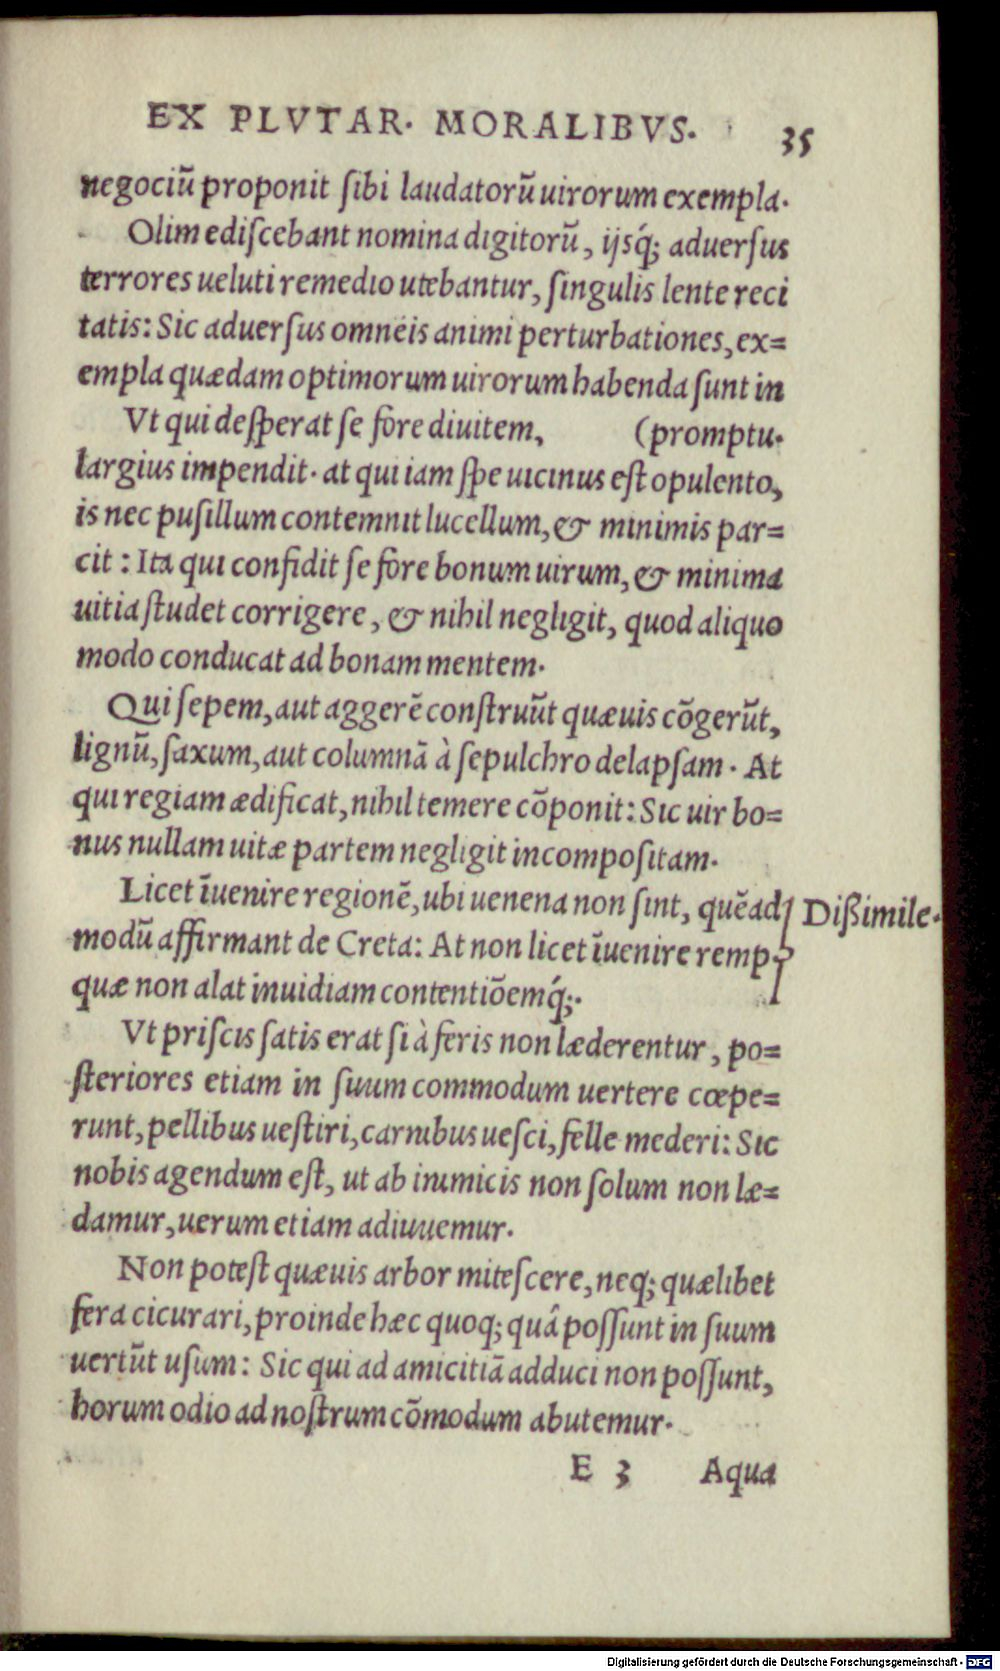 EX PLVTAR. MORALIBVS. 35
negociũ proponit ſibi laudatorũ uirorum exempla.
Olim ediſcebant nomina digitorũ, ijsq́; aduerſus
terrores ueluti remedio utebantur, ſingulis lente reci
tatis: Sic aduerſus omneis animi perturbationes, ex=
empla quædam optimorum uirorum habenda ſunt in
Vt qui deſperat ſe fore diuitem, (promptu.
largius impendit. at qui iam ſpe uicinus eſt opulento,
is nec puſillum contemnit lucellum, & minimis par=
cit: Ita qui confidit ſe fore bonum uirum, & minima
uitia ſtudet corrigere, & nihil negligit, quod aliquo
modo conducat ad bonam mentem.
Qui ſepem, aut aggerẽ conſtruũt quæuis cõgerũt,
lignũ, ſaxum, aut columnã à ſepulchro delapſam. At
qui regiam ædificat, nihil temere cõponit: Sic uir bo=
nus nullam uitæ partem negligit incompoſitam.
Licet ĩuenire regionẽ, ubi uenena non ſint, quẽad Dißimile.
modũ affirmant de Creta: At non licet ĩuenire remp.
quæ non alat inuidiam contentiõemq́;.
Vt priſcis ſatis erat ſi à feris non læderentur, po=
ſteriores etiam in ſuum commodum uertere cœpe=
runt, pellibus ueſtiri, carnibus ueſci, felle mederi: Sic
nobis agendum eſt, ut ab inimicis non ſolum non læ=
damur, uerum etiam adiuuemur.
Non poteſt quæuis arbor miteſcere, neq; quælibet
fera cicurari, proinde hæc quoq; quâ poſſunt in ſuum
uertũt uſum: Sic qui ad amicitiã adduci non poſſunt,
horum odio ad noſtrum cõmodum abutemur.
E 3 Aqua
Digitalisierung gefördert durch die Deutsche Forschungsgemeinschaft - DFG